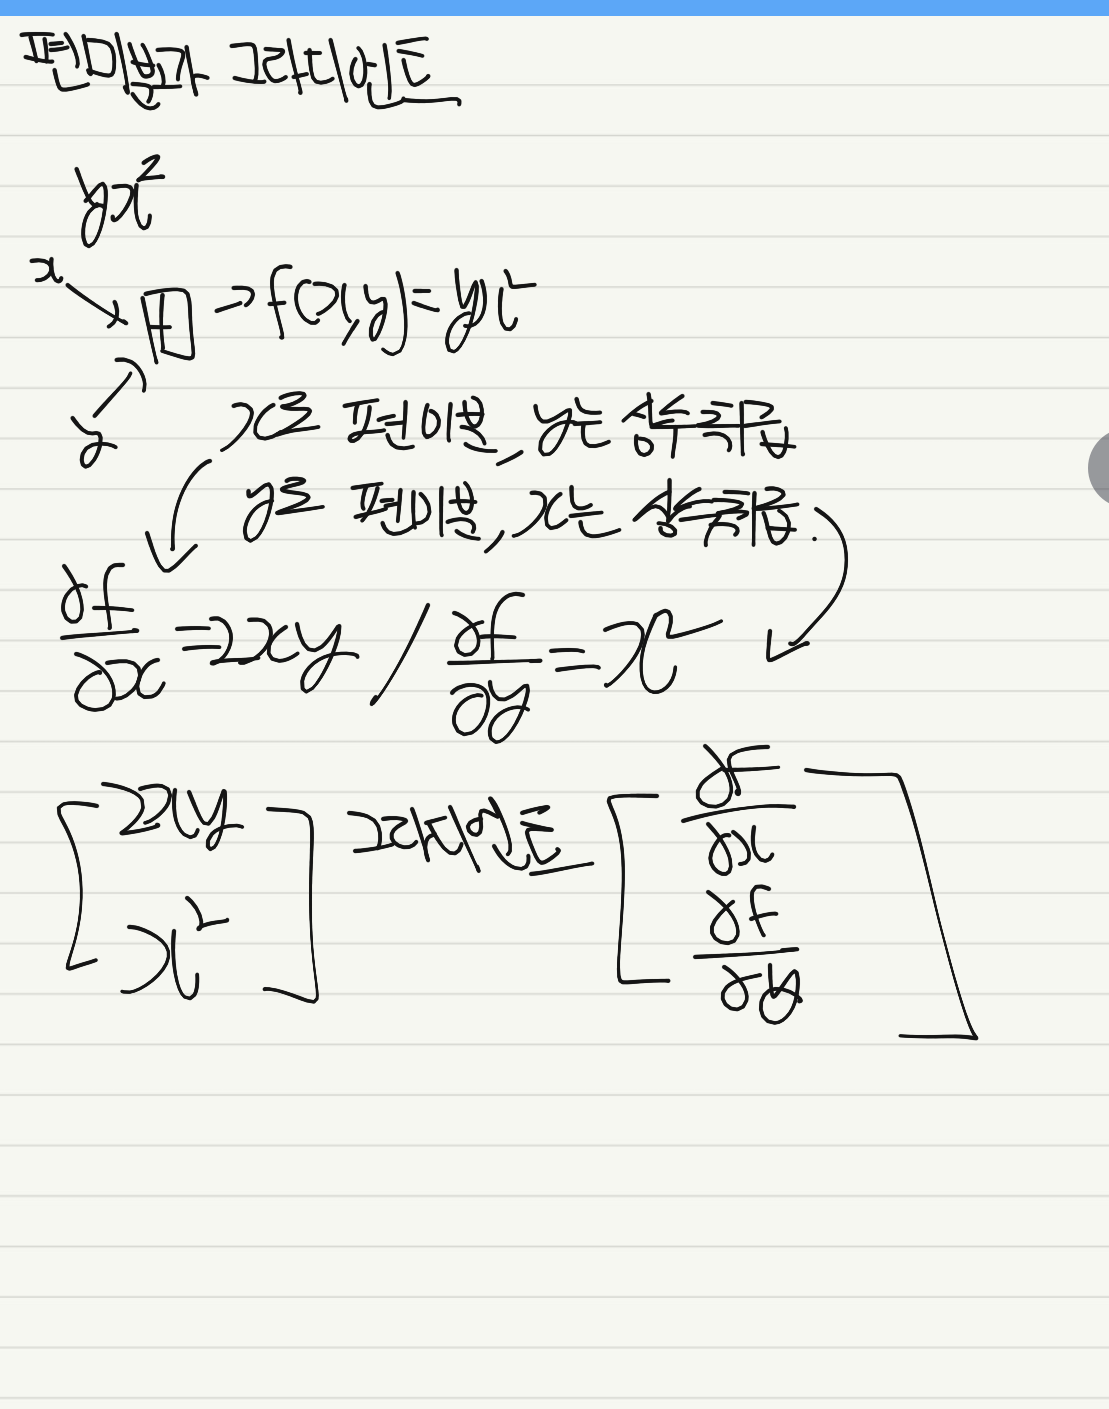 편미분과 그라디언트
yx²
x
f → f(x,y)=yx²
y
x로 편미분, y는 상수취급
y로 편미분, x는 상수취급.
∂f/∂x = 2xy / ∂f/∂y = x²
[2xy x²] 그라디언트 [∂f/∂x ∂f/∂y]